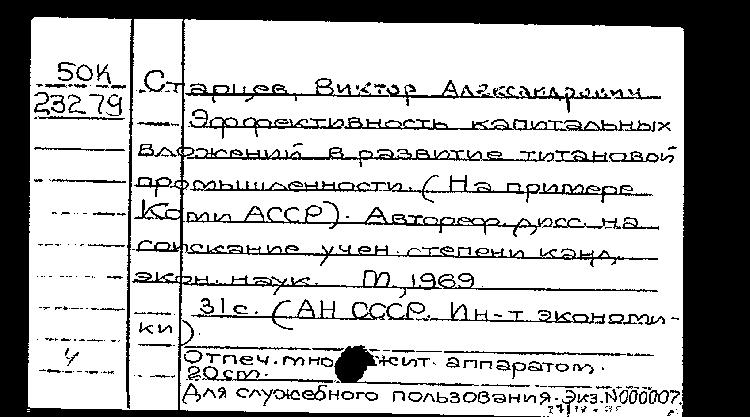 50К
23279
Старцев, Виктор Александрович
Эффективность капитальных
вложений в развитие титановой
промышленности. (На примере
Коми АССР). Автореф. дисс. на
соискание учен. степени канд.
экон. наук. М., 1969
31с. (АН СССР. Ин-т экономи-
ки).
Отпеч. множит. аппаратом.
20cm.
Для служебного пользования. Экз. N000007